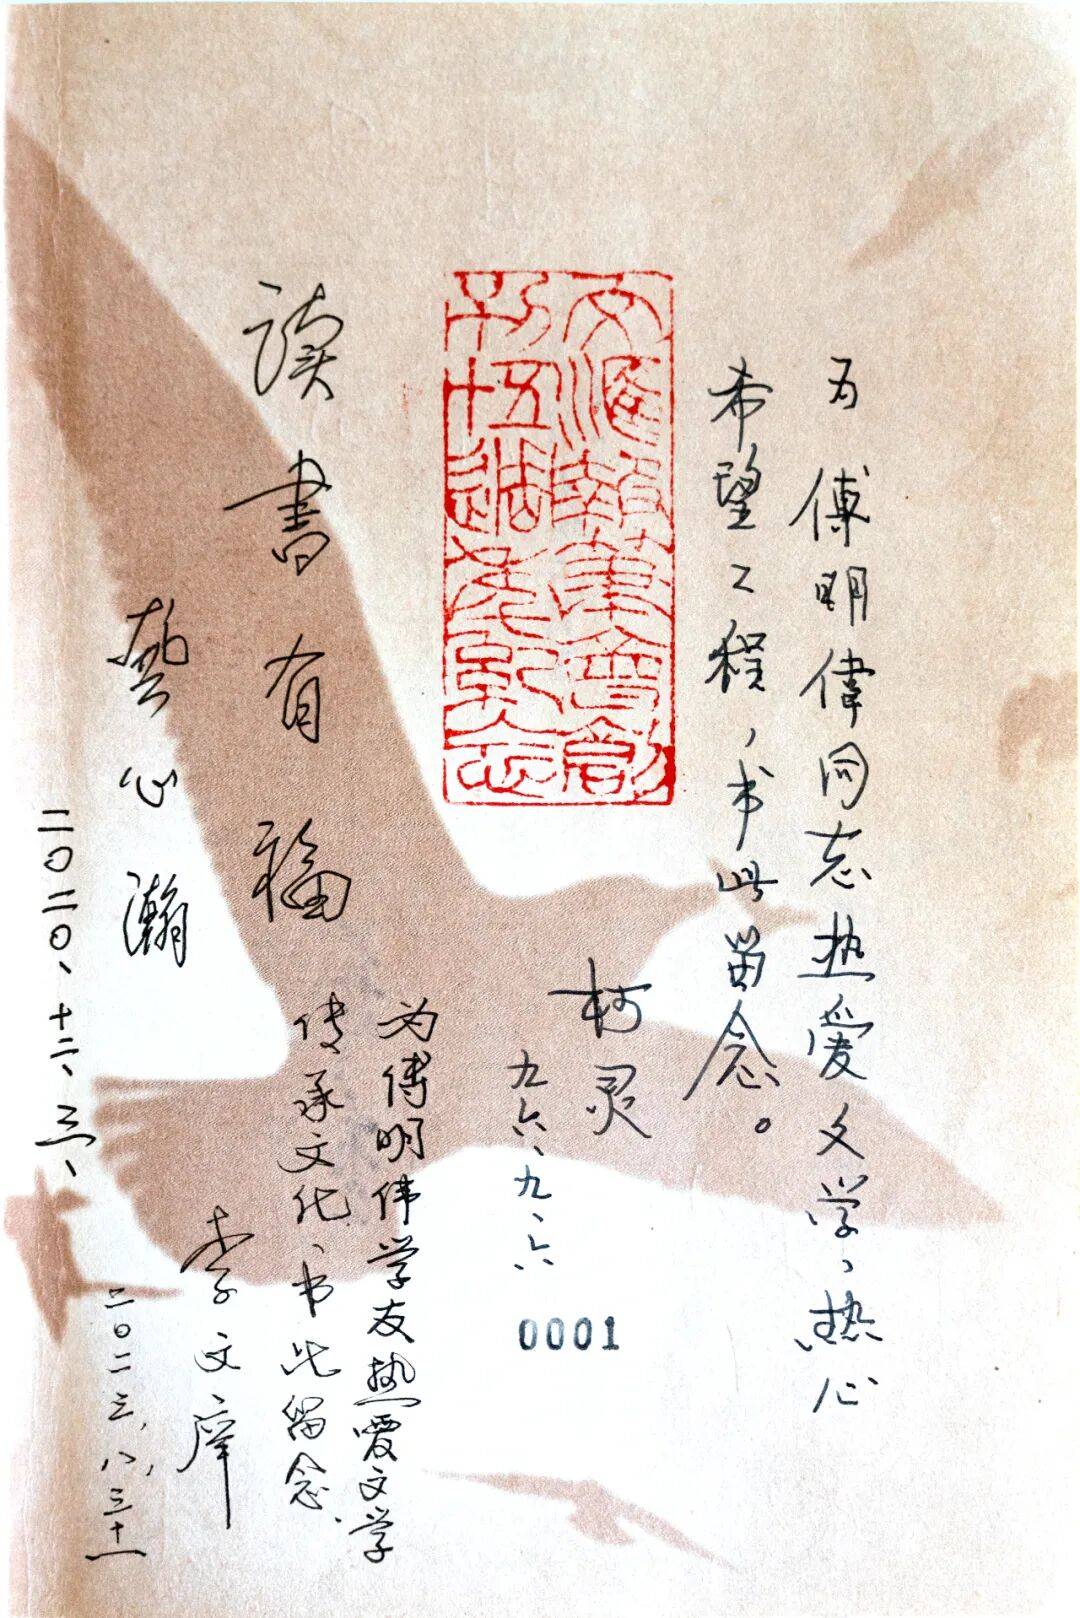 为傅明偉同志热爱文学、热心
希望工程、书此留念。
文滙報筆會創
刊五十週年紀念
柯灵
九六、九、六
0001
读書有福
藝心瀚
二〇二〇、十二、三、
为傅明伟学友热爱文学
传承文化、书此留念、
李文
二〇二三，八，三十一